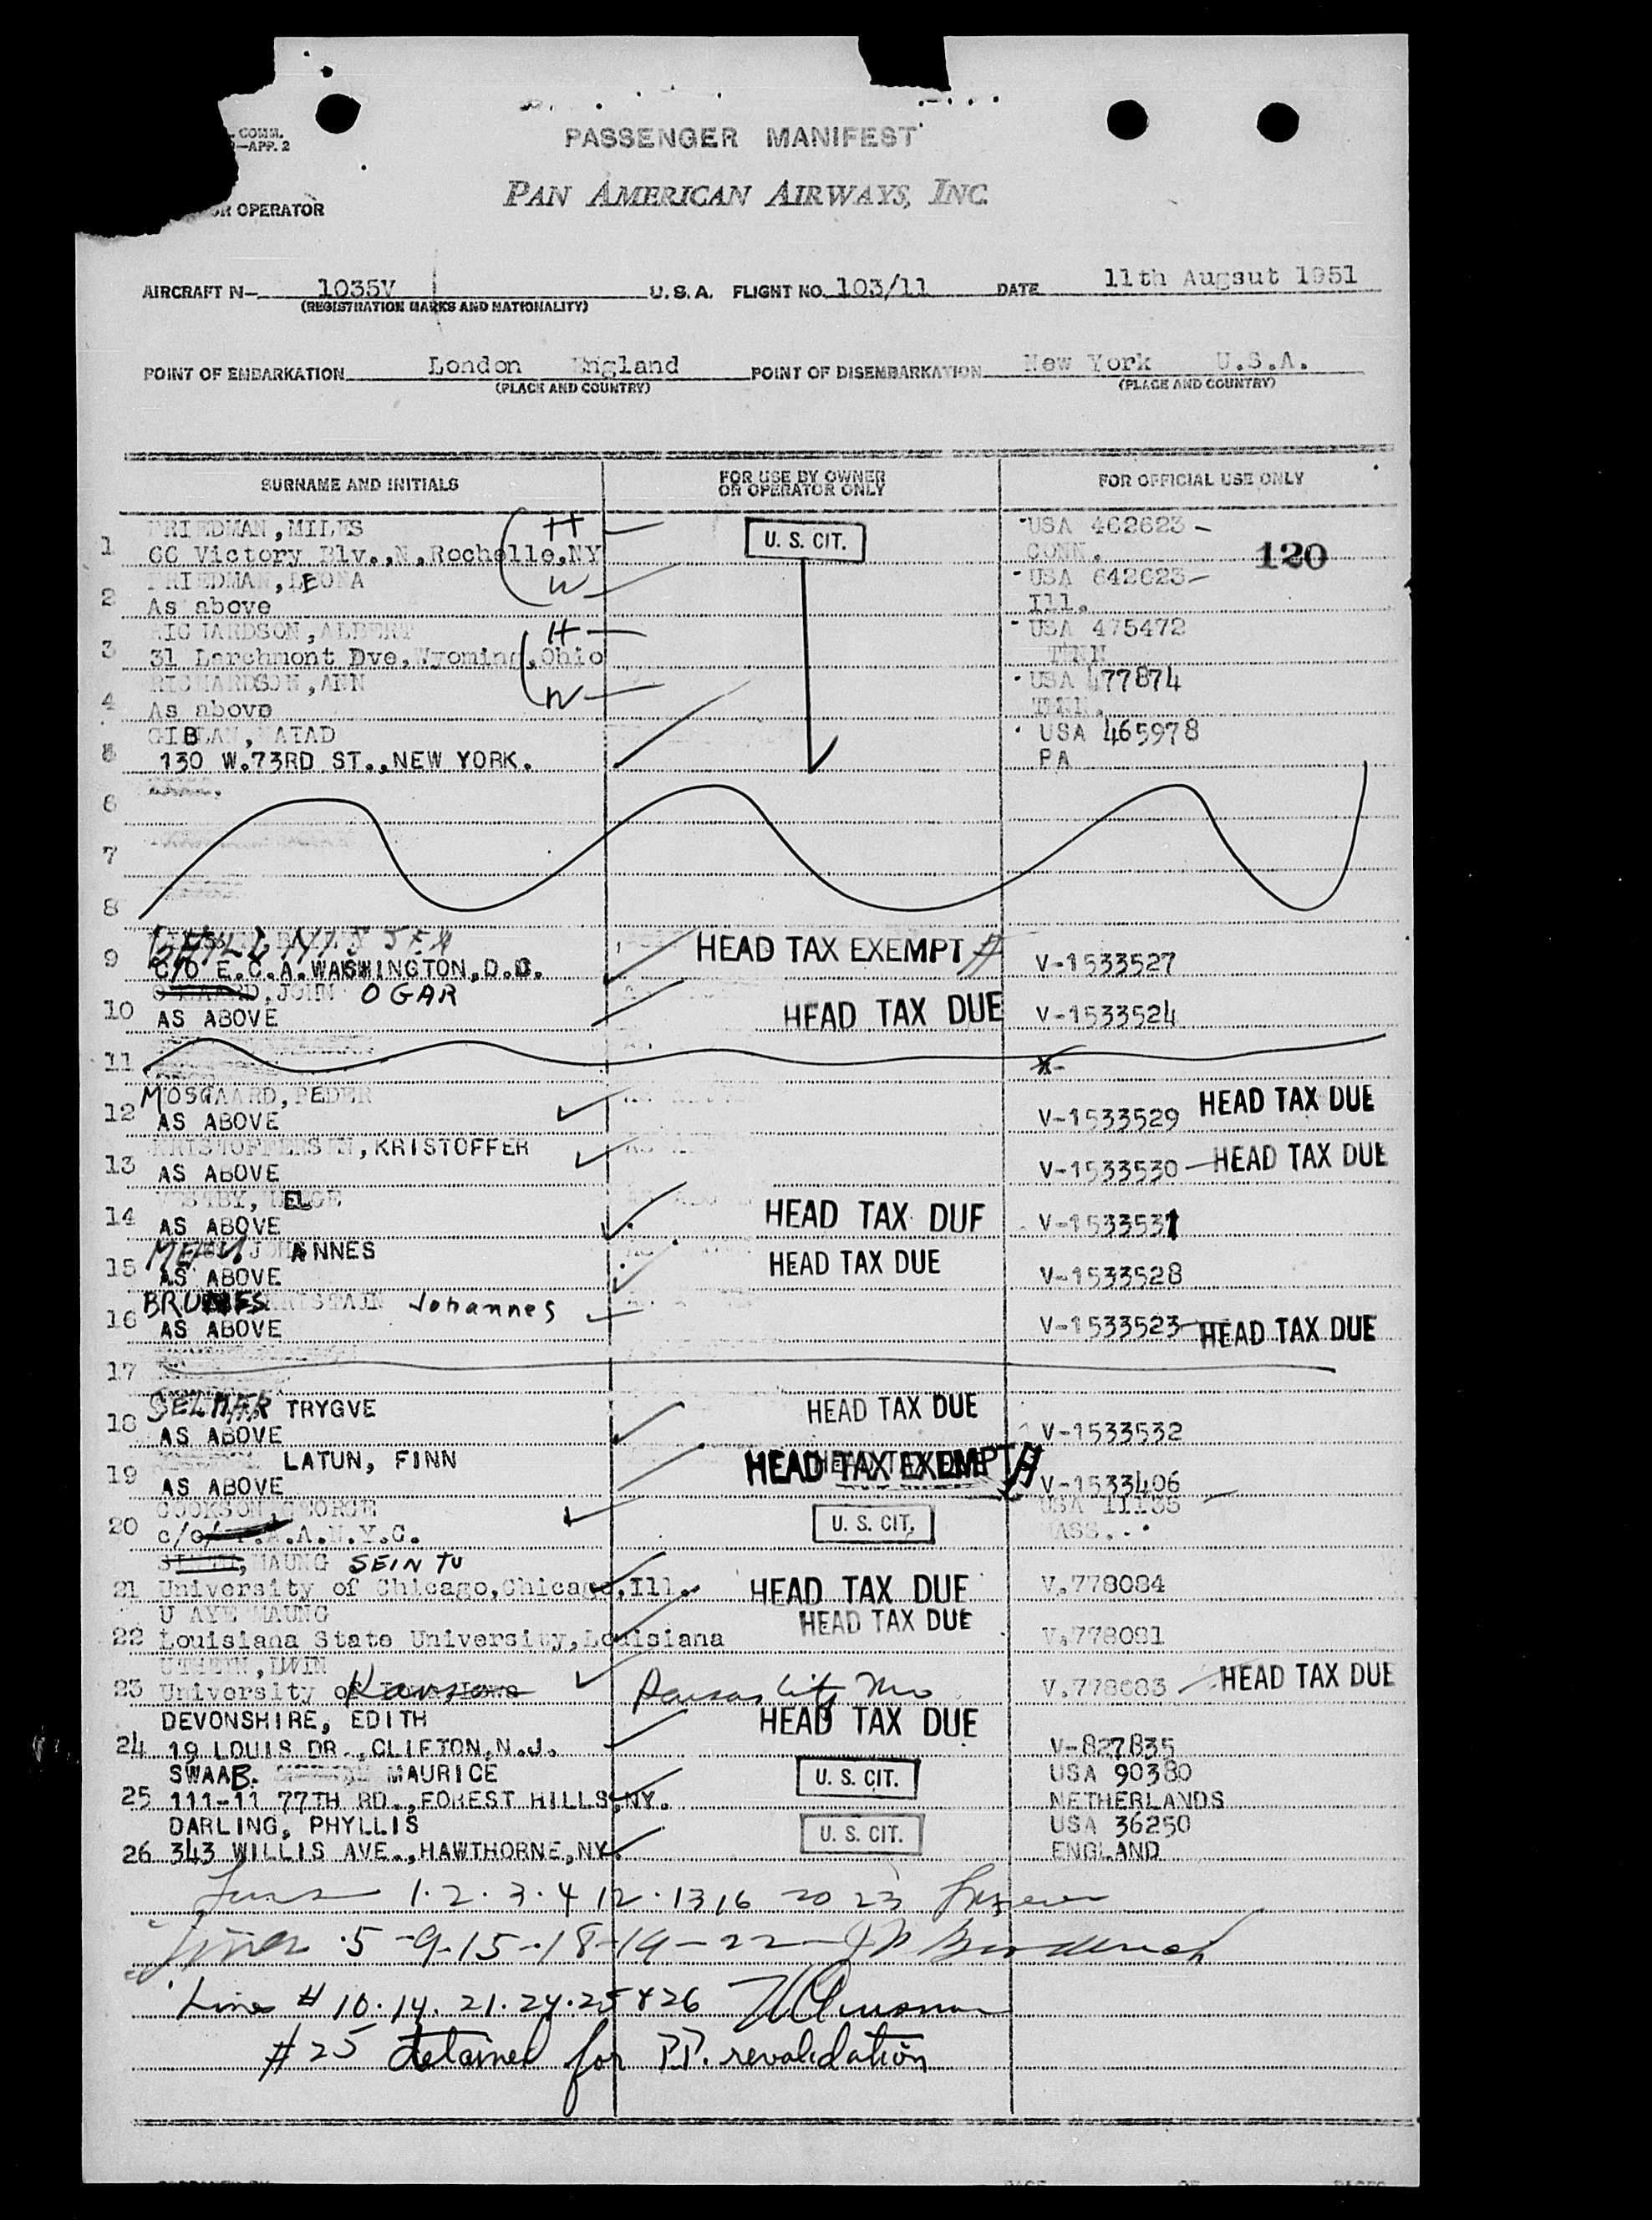 COMM.
—APP. 2
OR OPERATOR
PASSENGER MANIFEST
PAN AMERICAN AIRWAYS, INC.
AIRCRAFT N— 1035V U.S.A. FLIGHT NO. 103/11 DATE 11th Augsut 1951
(REGISTRATION MARKS AND NATIONALITY)
POINT OF EMBARKATION London England POINT OF DISEMBARKATION New York U.S.A.
(PLACE AND COUNTRY) (PLACE AND COUNTRY)
SURNAME AND INITIALS FOR USE BY OWNER OR OPERATOR ONLY FOR OFFICIAL USE ONLY
FRIEDMAN, MILES H U. S. CIT. USA 462623 —
1 Victory Blv.,N,Rochelle,NY CONN. 120
FRIEDMAN, LEONA W USA 642623 —
2 As above Ill.
RICHARDSON, ALBERT H USA 475472
3 31 Larchmont Dve,Wyoming,Ohio TENN
RICHARDSON, ANN W USA 477874
4 As above TENN.
USA 465978
5 130 W.73RD ST.,NEW YORK. PA
6
7
8
HEAD TAX EXEMPT
9 C/O E.C.A.WASHINGTON,D.C. V-1533527
JOHN OGAR
10 AS ABOVE HEAD TAX DUE V-1533524
11
MOSGAARD, PEDER
12 AS ABOVE V-1533529 HEAD TAX DUE
KRISTOFFERSEN, KRISTOFFER
13 AS ABOVE V-1533530 — HEAD TAX DUE
VESTBY, HELGE
14 AS ABOVE HEAD TAX DUE V-1533531
JOHANNES
15 AS ABOVE HEAD TAX DUE V-1533528
BRUNES Johannes
16 AS ABOVE V-1533523 HEAD TAX DUE
17
SELMER TRYGVE HEAD TAX DUE
18 AS ABOVE V-1533532
LATUN, FINN HEAD TAX EXEMPT
19 AS ABOVE V-1533406
COOKSON, GEORGE USA 11135 —
20 c/o P.A.A.N.Y.C. U. S. CIT. MASS.
MAUNG SEIN TU
21 University of Chicago,Chicago,Ill. HEAD TAX DUE V.778084
U AYE MAUNG HEAD TAX DUE
22 Louisiana State University,Louisiana V.778081
23 University of Kansas Kansas City Mo V.778083 HEAD TAX DUE
DEVONSHIRE, EDITH HEAD TAX DUE
24 19 LOUIS DR.,CLIFTON,N.J. V-827835
SWAAB. MAURICE U. S. CIT. USA 90380
25 111-11 77TH RD.,FOREST HILLS,NY. NETHERLANDS
DARLING, PHYLLIS U. S. CIT. USA 36250
26 343 WILLIS AVE.,HAWTHORNE,NY. ENGLAND
1·2·3·4 12·13 16 20 23
Lines ·5-9-15-18-19-22
Lines # 10·14·21·24·25 & 26
#25 detained for P.P. revalidation